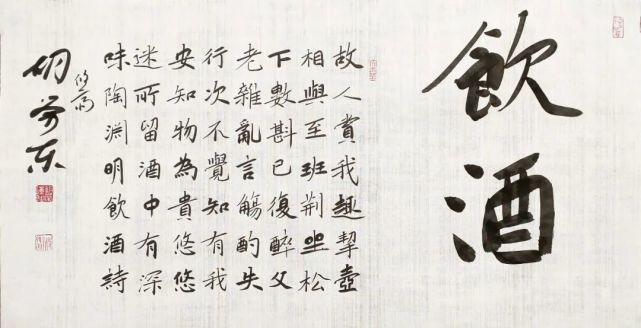 飲酒
故人賞我趣挈壺
相與至班荊坐松
下數斟已復醉父
老雜亂言觴酌失
行次不覺知有我
安知物為貴悠悠
迷所留酒中有深
味陶淵明飲酒詩